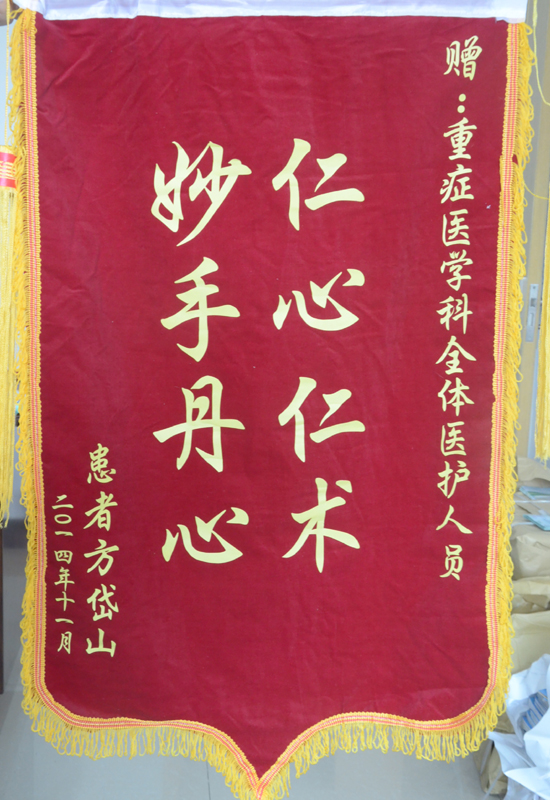 赠：重症医学科全体医护人员
仁心仁术
妙手丹心
患者方岱山
二〇一四年十一月